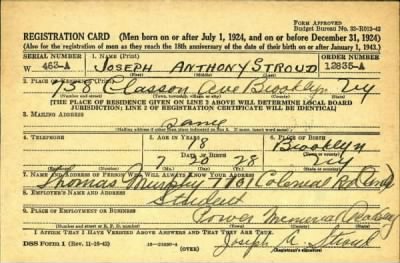 FORM APPROVED
Budget Bureau No. 33-R012-42
REGISTRATION CARD—(Men born on or after July 1, 1924, and on or before December 31, 1924)
(Also for the registration of men as they reach the 18th anniversary of the date of their birth on or after January 1, 1943.)
SERIAL NUMBER 1. NAME (Print) ORDER NUMBER
W 463-A JOSEPH ANTHONY STROUD 12835-A
(First) (Middle) (Last)
2. PLACE OF RESIDENCE (Print)
738 Classon Ave Brooklyn Ny
[THE PLACE OF RESIDENCE GIVEN ON LINE 2 ABOVE WILL DETERMINE LOCAL BOARD
JURISDICTION; LINE 2 OF REGISTRATION CERTIFICATE WILL BE IDENTICAL]
3. MAILING ADDRESS
Same
[Mailing address if other than place indicated on line 2. If same, insert word same]
4. TELEPHONE 5. AGE IN YEARS 6. PLACE OF BIRTH
18 Brooklyn
7 20 28 Ny
7. NAME AND ADDRESS OF PERSON WHO WILL ALWAYS KNOW YOUR ADDRESS
Thomas Murphy 7701 Colonial Rd
8. EMPLOYER'S NAME AND ADDRESS
Student
9. PLACE OF EMPLOYMENT OR BUSINESS
Power Memorial Academy
I AFFIRM THAT I HAVE VERIFIED ABOVE ANSWERS AND THAT THEY ARE TRUE.
DSS Form 1 (Rev. 11-16-42) (OVER) Joseph A. Stroud
(Registrant's signature)